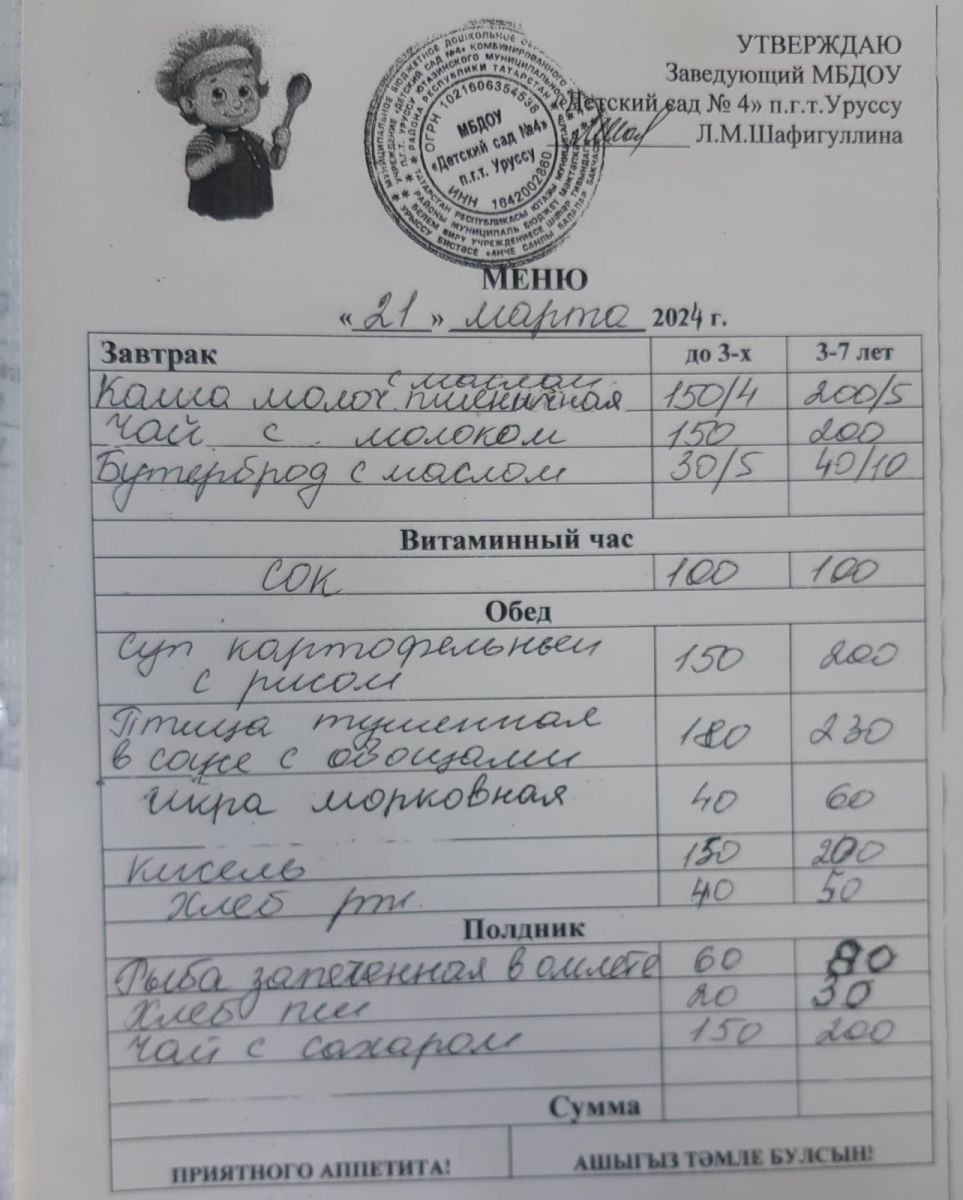 УТВЕРЖДАЮ
Заведующий МБДОУ
«Детский сад № 4» п.г.т.Уруссу
Л.М.Шафигуллина
ОГРН 1021606354538
МБДОУ
«Детский сад №4»
п.г.т. Уруссу
ИНН 1642002860
МЕНЮ
«21» марта 2024 г.
Завтрак до 3-х 3-7 лет
с маслом
Каша молоч. пшеничная 150/4 200/5
Чай с молоком 150 200
Бутерброд с маслом 30/5 40/10
Витаминный час
сок 100 100
Обед
Суп картофельный
с рисом 150 200
Птица тушенная
в соусе с овощами 180 230
Икра морковная 40 60
Кисель 150 200
Хлеб рж. 40 50
Полдник
Рыба запеченная в омлете 60 80
Хлеб пш 20 30
Чай с сахаром 150 200
Сумма
ПРИЯТНОГО АППЕТИТА! АШЫГЫЗ ТӘМЛЕ БУЛСЫН!